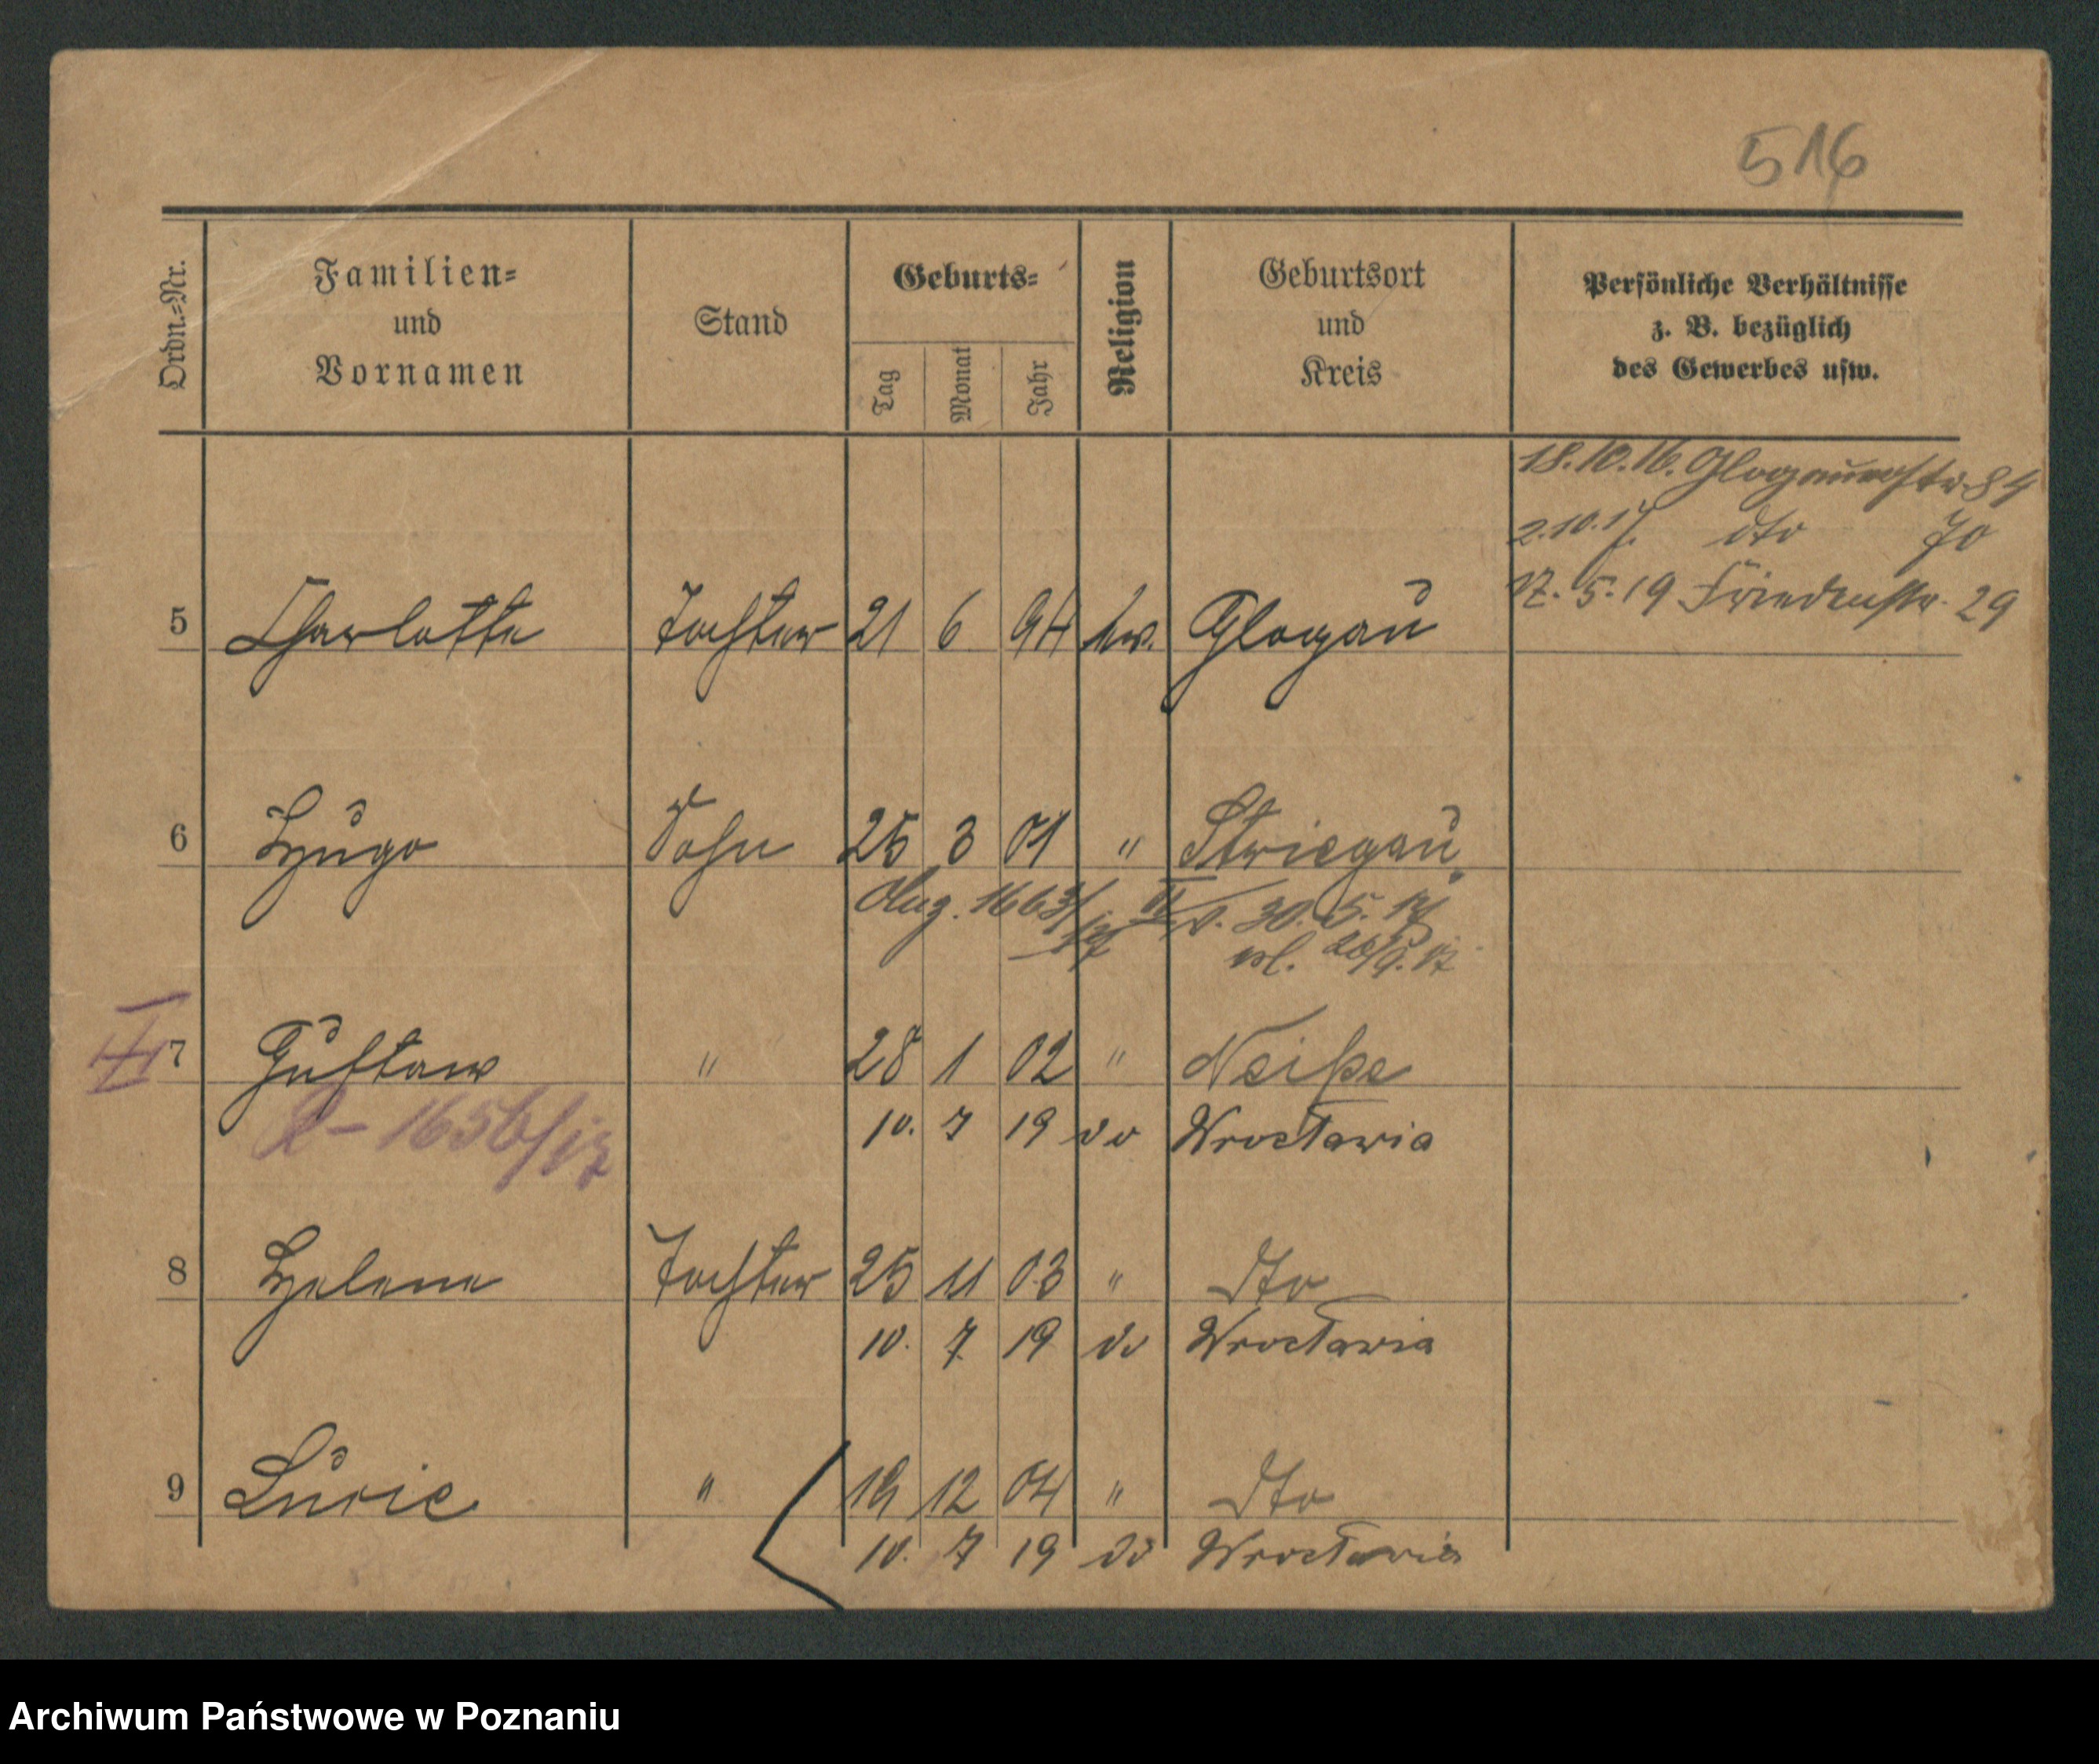 516
Ordn.=Nr.
Familien=
und
Vornamen
Stand
Geburts=
Tag
Monat
Jahr
Religion
Geburtsort
und
Kreis
Persönliche Verhältnisse
z. B. bezüglich
des Gewerbes usw.
18.10.16. Glogauerstr. 84
2.10.17. dto 70
17.5.19 Friedenstr. 29
5 Charlotte Tochter 21 6 94 Glogau
6 Hugo Sohn 25 3 01 " Striegau
30. 5. 17
7 Gustav " 28 1 02 " Neiße
10. 7 19 do Wrocławia
1656/17
8 Helene Tochter 25 11 03 " dto
10. 7. 19 do Wrocławia
9 Lucie " 12 04 " dto
10. 7 19 do Wrocławia
Archiwum Państwowe w Poznaniu